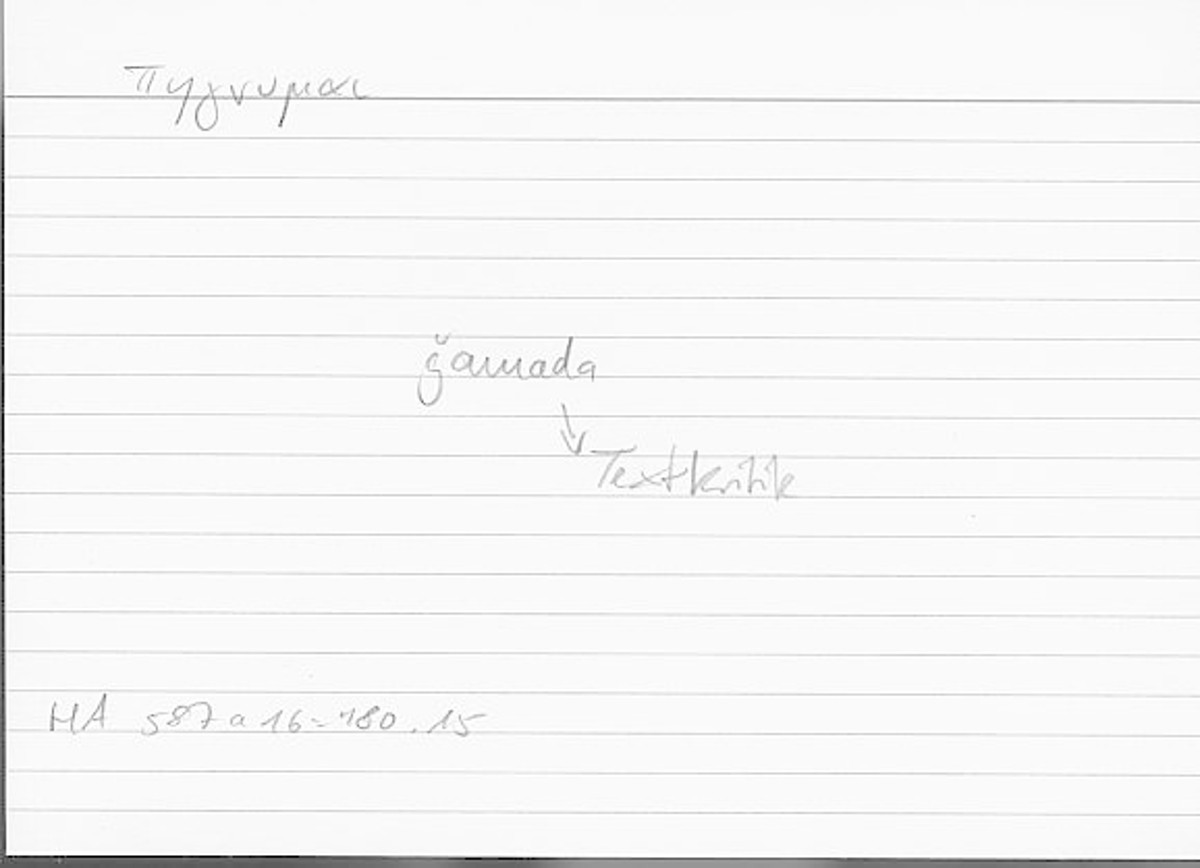 πηγνυμαι
ğamada
↘ Textkritik
HA 587a16-180.15